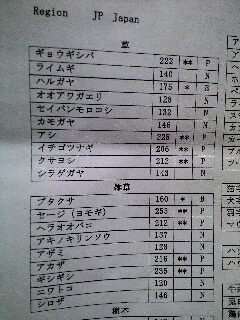 Region JP Japan
草
ギョウギシバ 222 ** P
ライムギ 140 N
ハルガヤ 175 * B
オオアワガエリ 128 N
セイバンモロコシ 132 N
カモガヤ 146 N
アシ 228 ** P
イチゴツナギ 206 ** P
クサヨシ 212 ** P
シラゲガヤ 143 N
雑草
ブタクサ 160 * B
セージ (ヨモギ) 253 ** P
ヘラオオバコ 212 ** P
アキノキリンソウ 137 N
アザミ 128 N
アカザ 216 ** P
ギシギシ 235 ** P
ニワトコ 120 N
シロザ 146 N
樹木